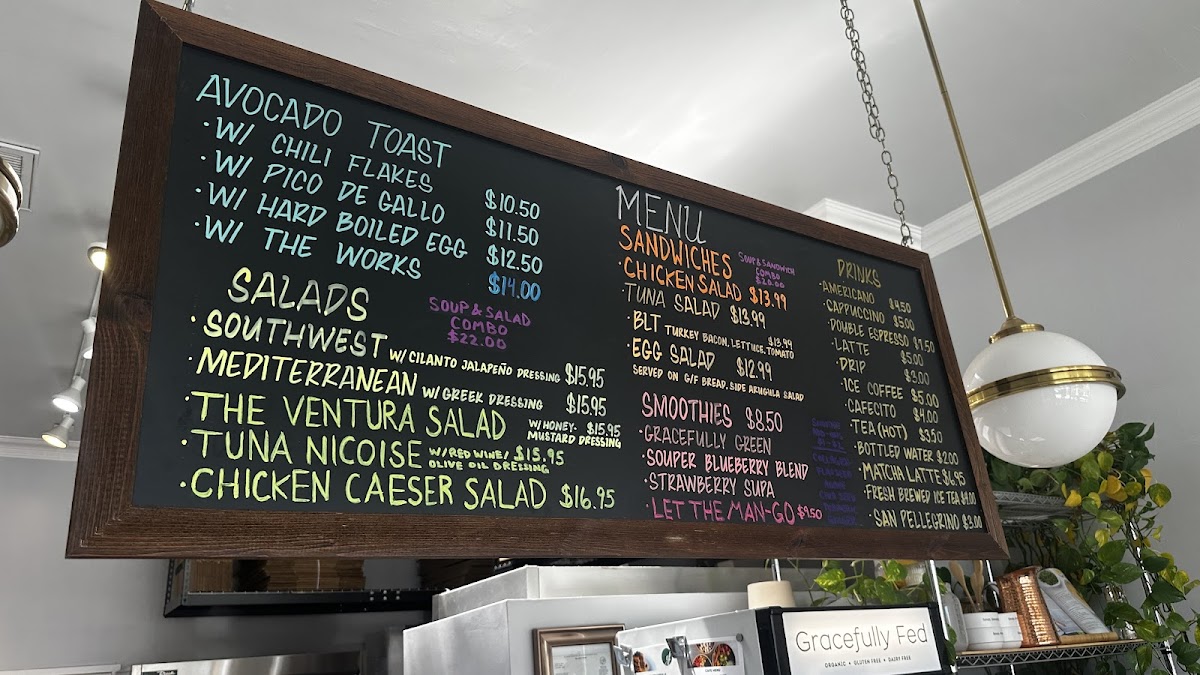 AVOCADO TOAST
·W/ CHILI FLAKES $10.50
·W/ PICO DE GALLO $11.50
·W/ HARD BOILED EGG $12.50
·W/ THE WORKS $14.00
SALADS
SOUP & SALAD
COMBO
$22.00
·SOUTHWEST W/ CILANTO JALAPEÑO DRESSING $15.95
·MEDITERRANEAN W/ GREEK DRESSING $15.95
·THE VENTURA SALAD W/ HONEY- $15.95
MUSTARD DRESSING
·TUNA NICOISE W/ RED WINE/ $15.95
OLIVE OIL DRESSING
·CHICKEN CAESER SALAD $16.95
MENU
SANDWICHES
SOUP & SANDWICH
COMBO
$20.00
·CHICKEN SALAD $13.99
·TUNA SALAD $13.99
·BLT TURKEY BACON, LETTUCE, TOMATO $13.99
·EGG SALAD $12.99
SERVED ON G/F BREAD, SIDE ARUGULA SALAD
SMOOTHIES $8.50
·GRACEFULLY GREEN
·SOUPER BLUEBERRY BLEND
·STRAWBERRY SUPA
·LET THE MAN-GO $9.50
DRINKS
·AMERICANO $4.50
·CAPPUCCINO $5.00
·DOUBLE ESPRESSO $3.50
·LATTE $5.00
·DRIP $3.00
·ICE COFFEE $5.00
·CAFECITO $4.00
·TEA (HOT) $3.50
·BOTTLED WATER $2.00
·MATCHA LATTE $6.95
·FRESH BREWED ICE TEA
·SAN PELLEGRINO $3.00
Gracefully Fed
ORGANIC • GLUTEN FREE • DAIRY FREE